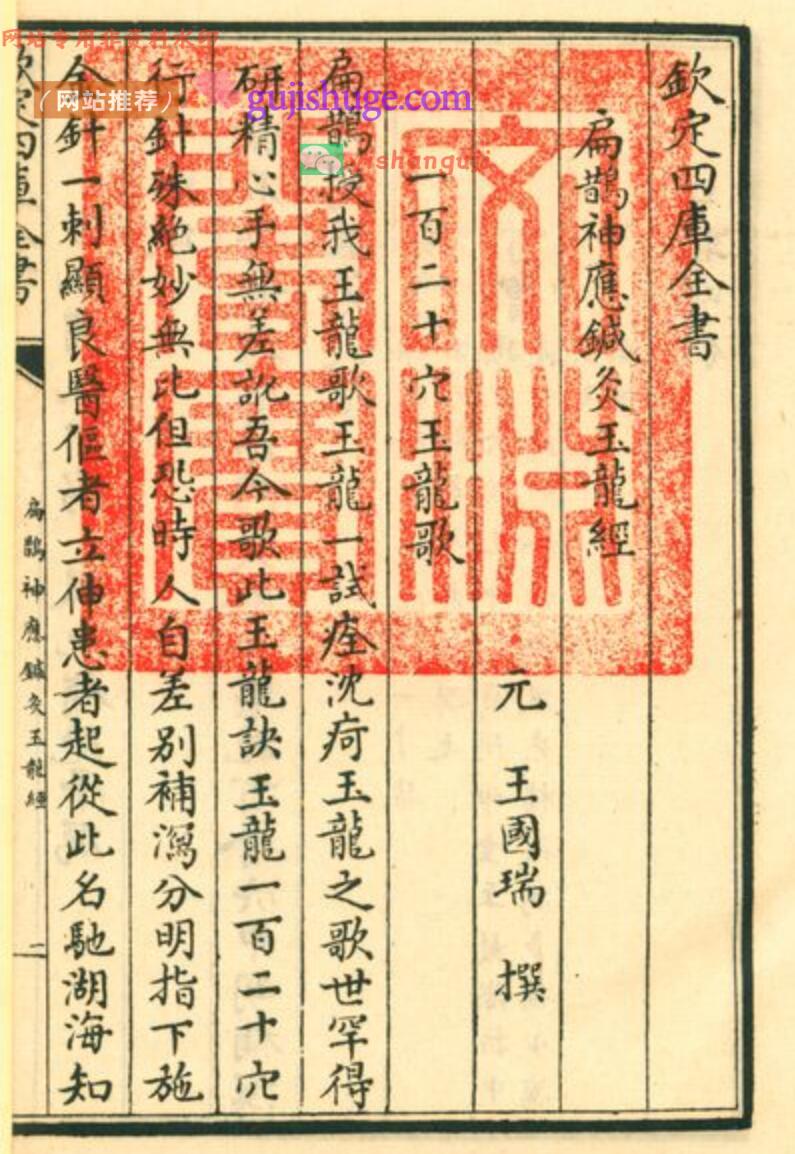 欽定四庫全書
扁鵲神應鍼灸玉龍經
元 王國瑞 撰
一百二十穴玉龍歌
扁鵲授我玉龍歌玉龍一試痊沈疴玉龍之歌世罕得
研精心手無差訛吾今歌此玉龍訣玉龍一百二十穴
行針殊絶妙無比但恐時人自差別補瀉分明指下施
金針一刺顯良醫傴者立伸患者起從此名馳湖海知
欽定四庫全書
扁鵲神應鍼灸玉龍經
二
文淵
网站专用非资料水印
(网站推荐)
gujishuge.com